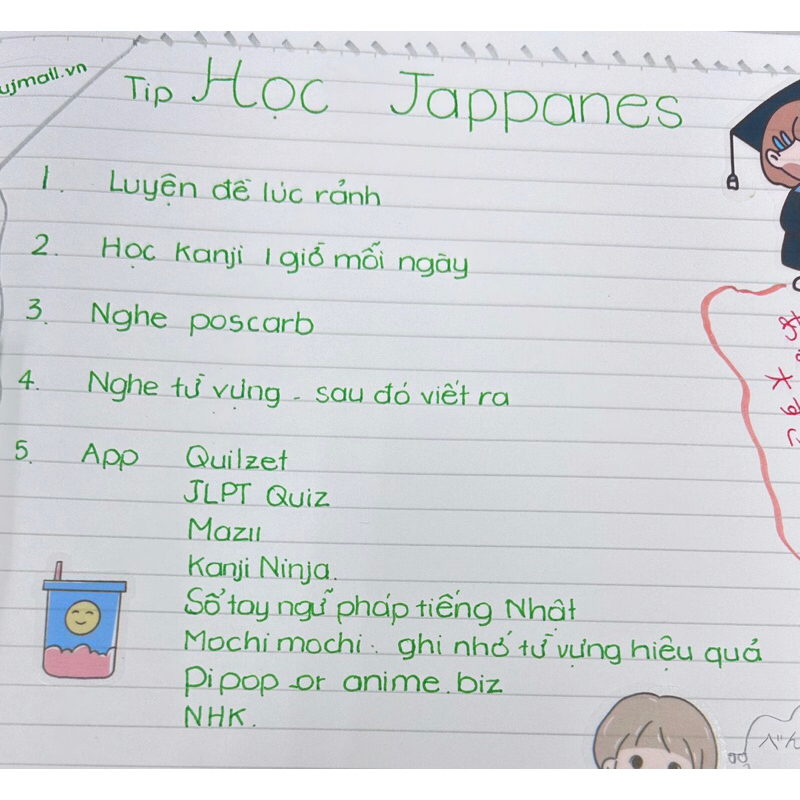 ujmall.vn
Tip Học Jappanes
1. Luyện đề lúc rảnh
2. Học Kanji 1 giờ mỗi ngày
3. Nghe poscarb
4. Nghe từ vựng - sau đó viết ra
5. App Quilzet
JLPT Quiz
Mazii
Kanji Ninja.
Sổ tay ngữ pháp tiếng Nhật
Mochi mochi. ghi nhớ từ vựng hiệu quả
Pipop or anime.biz
NHK.
べん